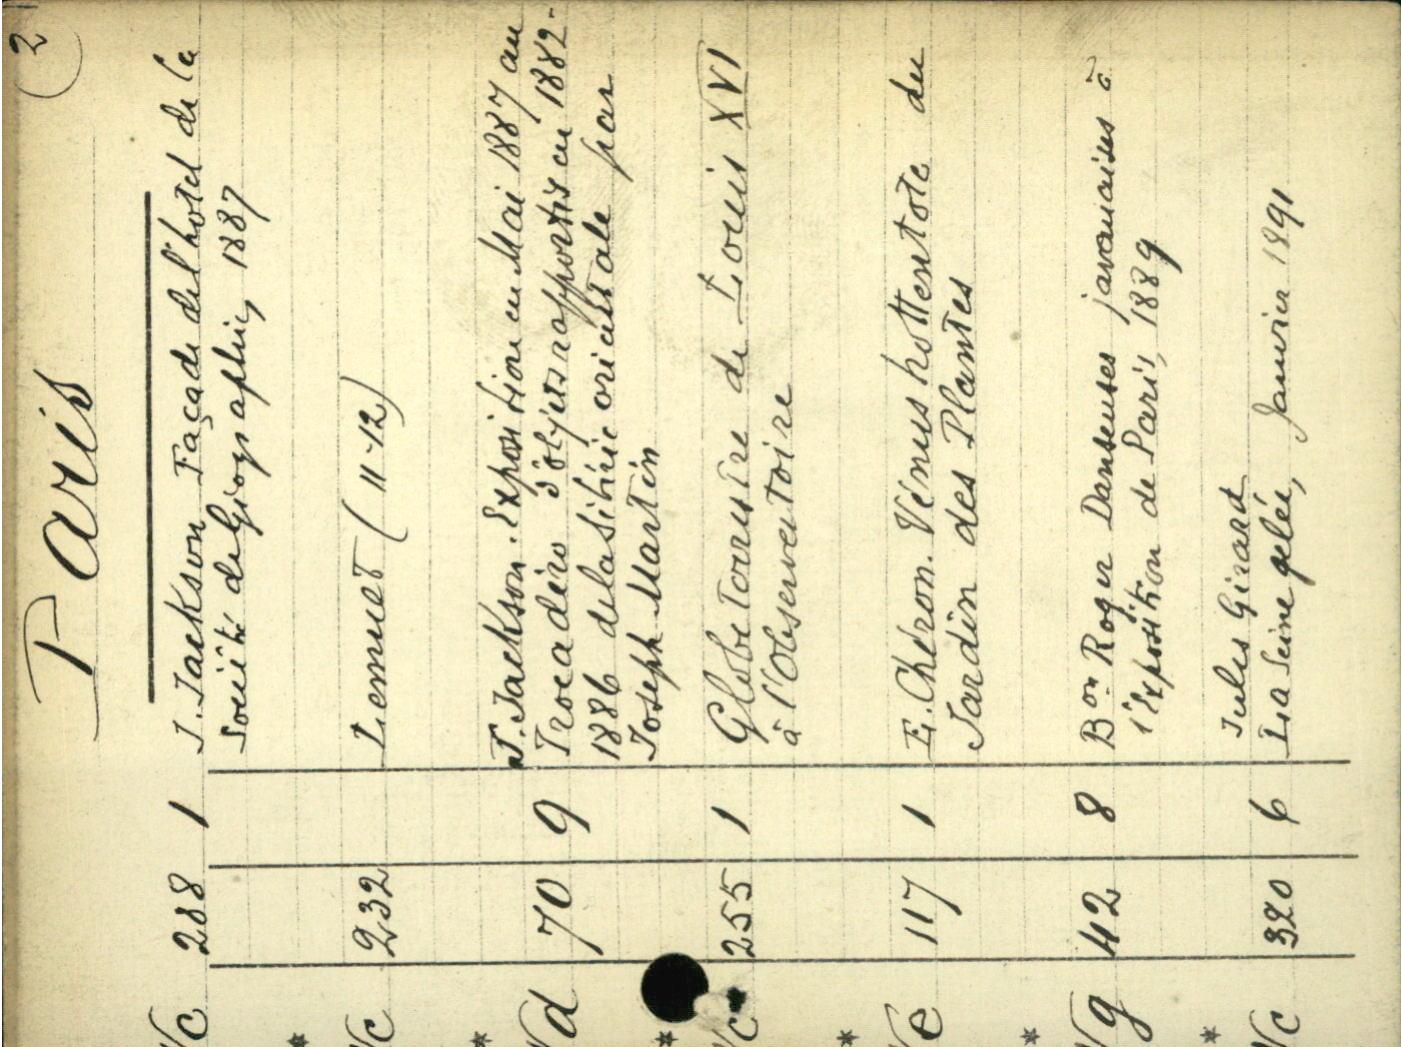 2
Paris
Wc 288 1 J. Jackson Façade de l'hotel de la
Société de Géographie, 1887
*
Wc 232 Lemuet (11-12)
*
J. Jackson. Exposition en Mai 1887 au
Wd 70 9 Trocadéro d'objets rapportés en 1882-
1886 de la Sibérie orientale par
Joseph Martin
*
Wc 255 1 Globe terrestre de Louis XVI
à l'Observatoire
*
We 117 1 E. Chéron. Vénus hottentote du
Jardin des Plantes
*
Wg 42 8 Bon Roger Danseuses javanaises à
l'Exposition de Paris, 1889
*
Jules Girard
Wc 320 6 La Seine gelée, Janvier 1891